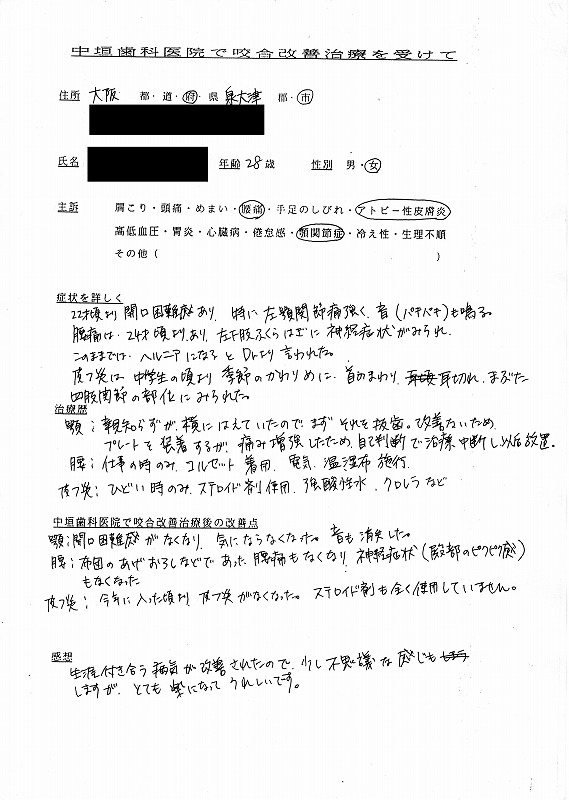 中垣歯科医院で咬合改善治療を受けて
住所 大阪 都・道・府・県 泉大津 郡・市
氏名 年齢 28歳 性別 男・女
主訴 肩こり・頭痛・めまい・腰痛・手足のしびれ・アトピー性皮膚炎
高低血圧・胃炎・心臓病・倦怠感・顎関節症・冷え性・生理不順
その他( )
症状を詳しく
22才頃より 開口困難感あり、特に左顎関節痛強く、音(パキパキ)も鳴る。
腰痛は、24才頃よりあり、左下肢ふくらはぎに神経症状がみられ、
このままでは、ヘルニアになると Drより言われた。
皮フ炎は 中学生の頃より 季節のかわりめに、首のまわり、耳切れ、まぶた
四肢関節の部位にみられた。
治療歴
顎;親知らずが、横にはえていたので、まず それを抜歯。改善ないため、
プレートを装着するが、痛み増強したため、自己判断で治療中断し以後放置。
腰;仕事の時のみ コルセット着用、電気、温湿布 施行。
皮フ炎;ひどい時のみ、ステロイド剤使用、強酸性水、クロレラなど
中垣歯科医院で咬合改善治療後の改善点
顎;開口困難感がなくなり、気にならなくなった。音も消失した。
腰;布団のあげおろしなどであった 腰痛もなくなり、神経症状(殿部のピクピク感)
もなくなった
皮フ炎;今年に入った頃より、皮フ炎がなくなった。ステロイド剤も全く使用していません。
感想
生涯付き合う病気が改善されたので、少し不思議な感じも
しますが、とても楽になって うれしいです。